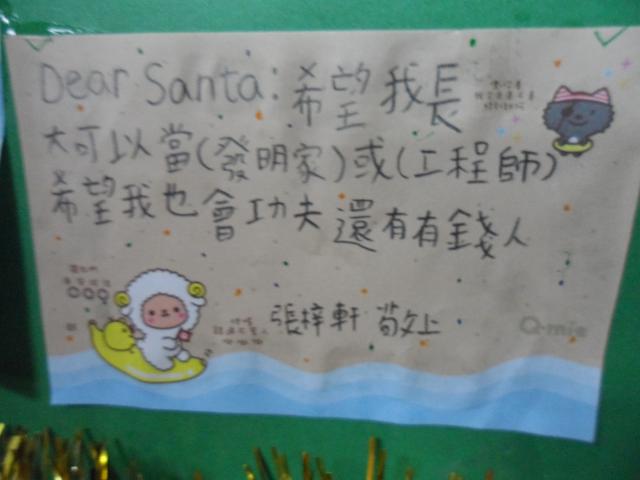 Dear Santa：希望我長
大可以當(發明家)或(工程師)
希望我也會功夫還有有錢人
張梓軒 敬上
Q-mie